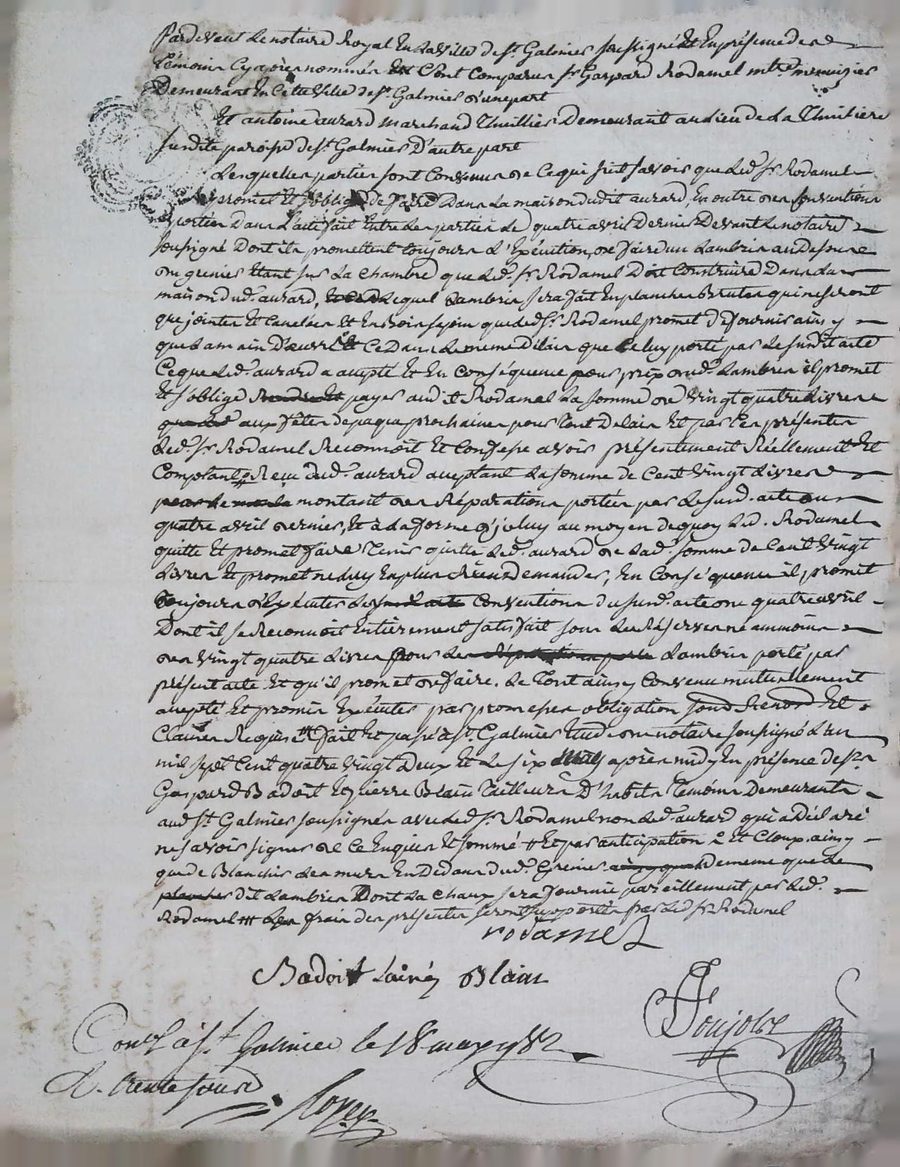 Pardevant Le notaire Royal En la ville de st. Galmier soussigné Et En présence des
témoins cy après nommés Ont Comparus sr. Gaspard Rodamel mtre. menuizier
Demeurant En Cette ville de st. Galmier d'une part
Et antoine aurard marchand Thuillier Demeurant au lieu de La Thuiliere
susdite paroisse de st. Galmier D'autre part
Lesquelles parties sont Convenues de Ce qui suit savoir que Led. sr. Rodamel
promet Et s'oblige de faire Dans La maison dudit aurard, En outre des Conventions
portées Dans L'acte fait Entre Les parties Le quatre avril Dernier Devant Le notaire
soussigné Dont ils promettent toujours L'Exécution, de faire un Lambris au Dessus
du grenier Etant sur La chambre que Led. sr. Rodamel Doit Construire Dans La
maison dud. aurard, Lequel Lambris sera fait En planches Brutes qui ne seront
que jointes Et Et En Bois sapin que led. sr. Rodamel promet De fournir ainsy
que La main D'oeuvre Et Ce Dans Le meme Délais que Celuy porté par Le susdit acte
Ce que Led. aurard a accepté Et En Conséquence pour prix dud. Lambris il promet
Et s'oblige payer audit Rodamel La somme de Vingt quatre Livres
aux fêtes de paque prochaines pour tout Délais Et par Ces présentes
Led. sr. Rodamel Reconnoit Et Confesse avoir présentement Réellement Et
Comptant Reçu dud. aurard acceptant La somme de Cent Vingt Livres
montant des Réparations portées par Le susd. acte du
quatre avril dernier, Et à La forme d'jceluy au moyen de quoy Led. Rodamel
quitte Et promet faire tenir quitte Led. aurard de Lad. somme de Cent Vingt
Livres Et promet ne luy En plus Rien Demander, En Conséquence il promet
toujours d'Exécuter Les Conventions du susd. acte du quatre avril
Dont il se Reconnoit Entièrement satisfait sous La Réserve néammoins
des Vingt quatre Livres pour Le Lambris porté par
présent acte Et qu'il promet de faire. Le tout ainsy Convenu mutuellement
accepté Et promis Exécuter par promesses obligation Renond. Et
Clauses Requises fait Et passé à st. Galmier Etude du notaire soussigné L'an
mil sept Cent quatre Vingt Deux Et Le six may après midy En présence de srs.
Gaspard Badoit Et pierre Blain Tailleurs D'habits Témoins Demeurants
aud. st. Galmier soussignés avec led. sr. Rodamel non Led. aurard qui a déclaré
ne savoir signer de Ce Enquis Et sommé + Et par anticipation ainsy
que de Blanchir Les murs En Dedans dud. Grenier de meme que Le
dit Lambris Dont La Chaux sera fournie pareillement par Led.
Rodamel Les frais des présentes seront supportés par Led. sr. Rodamel
rodamel
Badoit Lainé Blain
Ponjolse
Conlé à st. Galmier le 18 may 1782
R. trente sous
Royer